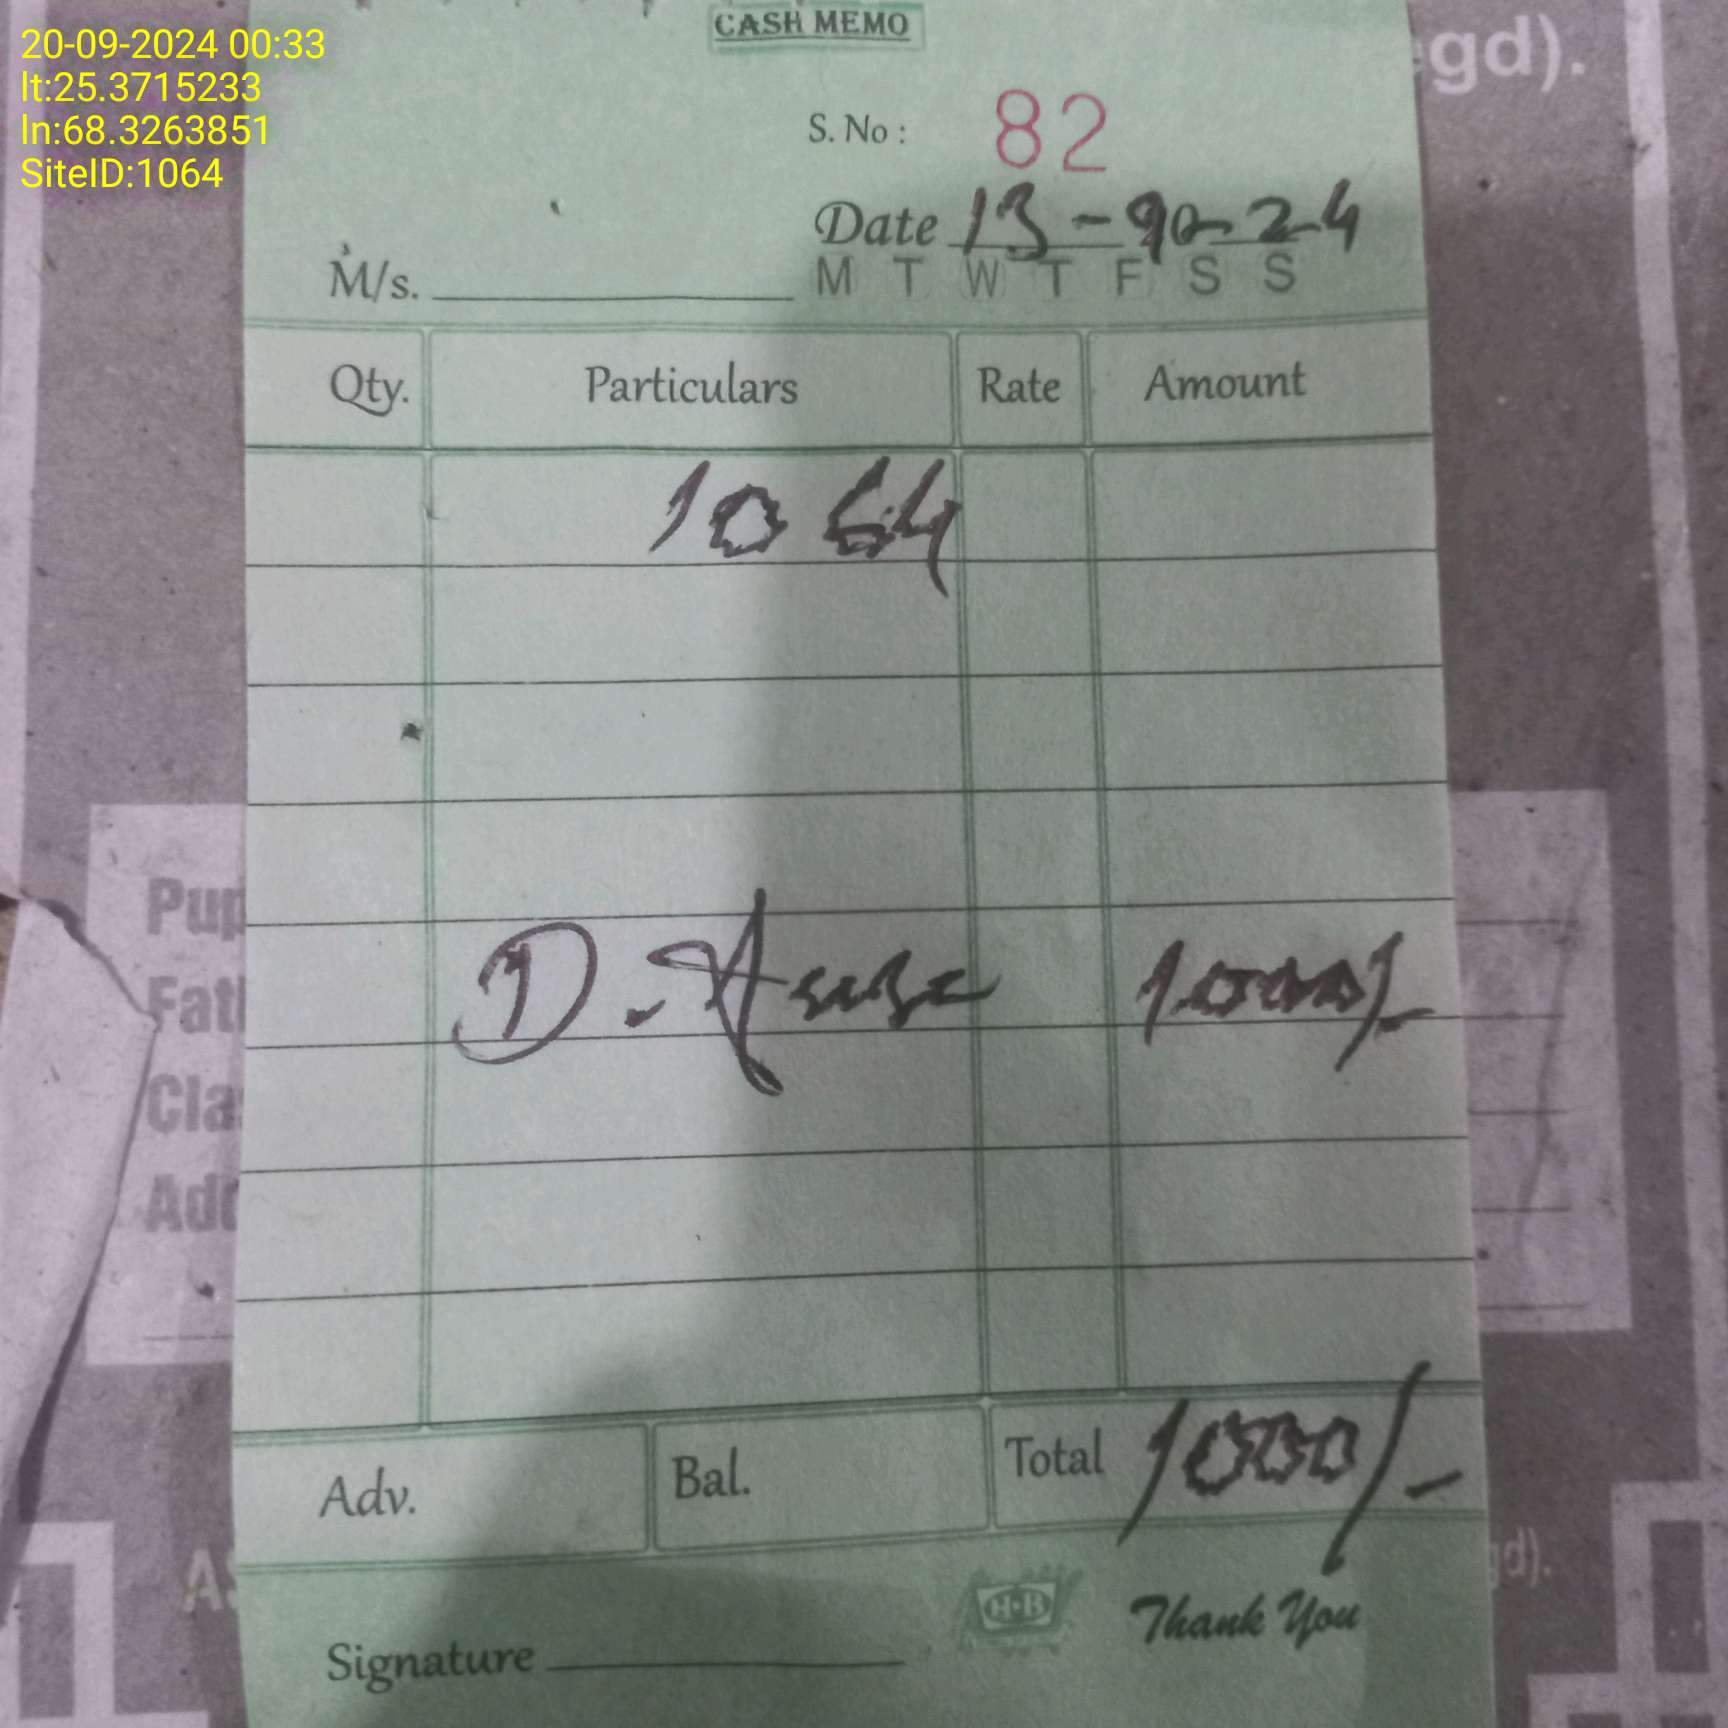 20-09-2024 00:33
lt:25.3715233
ln:68.3263851
SiteID:1064
CASH MEMO
gd).
S. No : 82
Date 13-9-24
M/s.
M T W T F S S
Qty. Particulars Rate Amount
1064
D. 1000/-
Pup
Fat
Cla
Add
Adv. Bal. Total 1000/-
gd).
H-B
Thank You
Signature